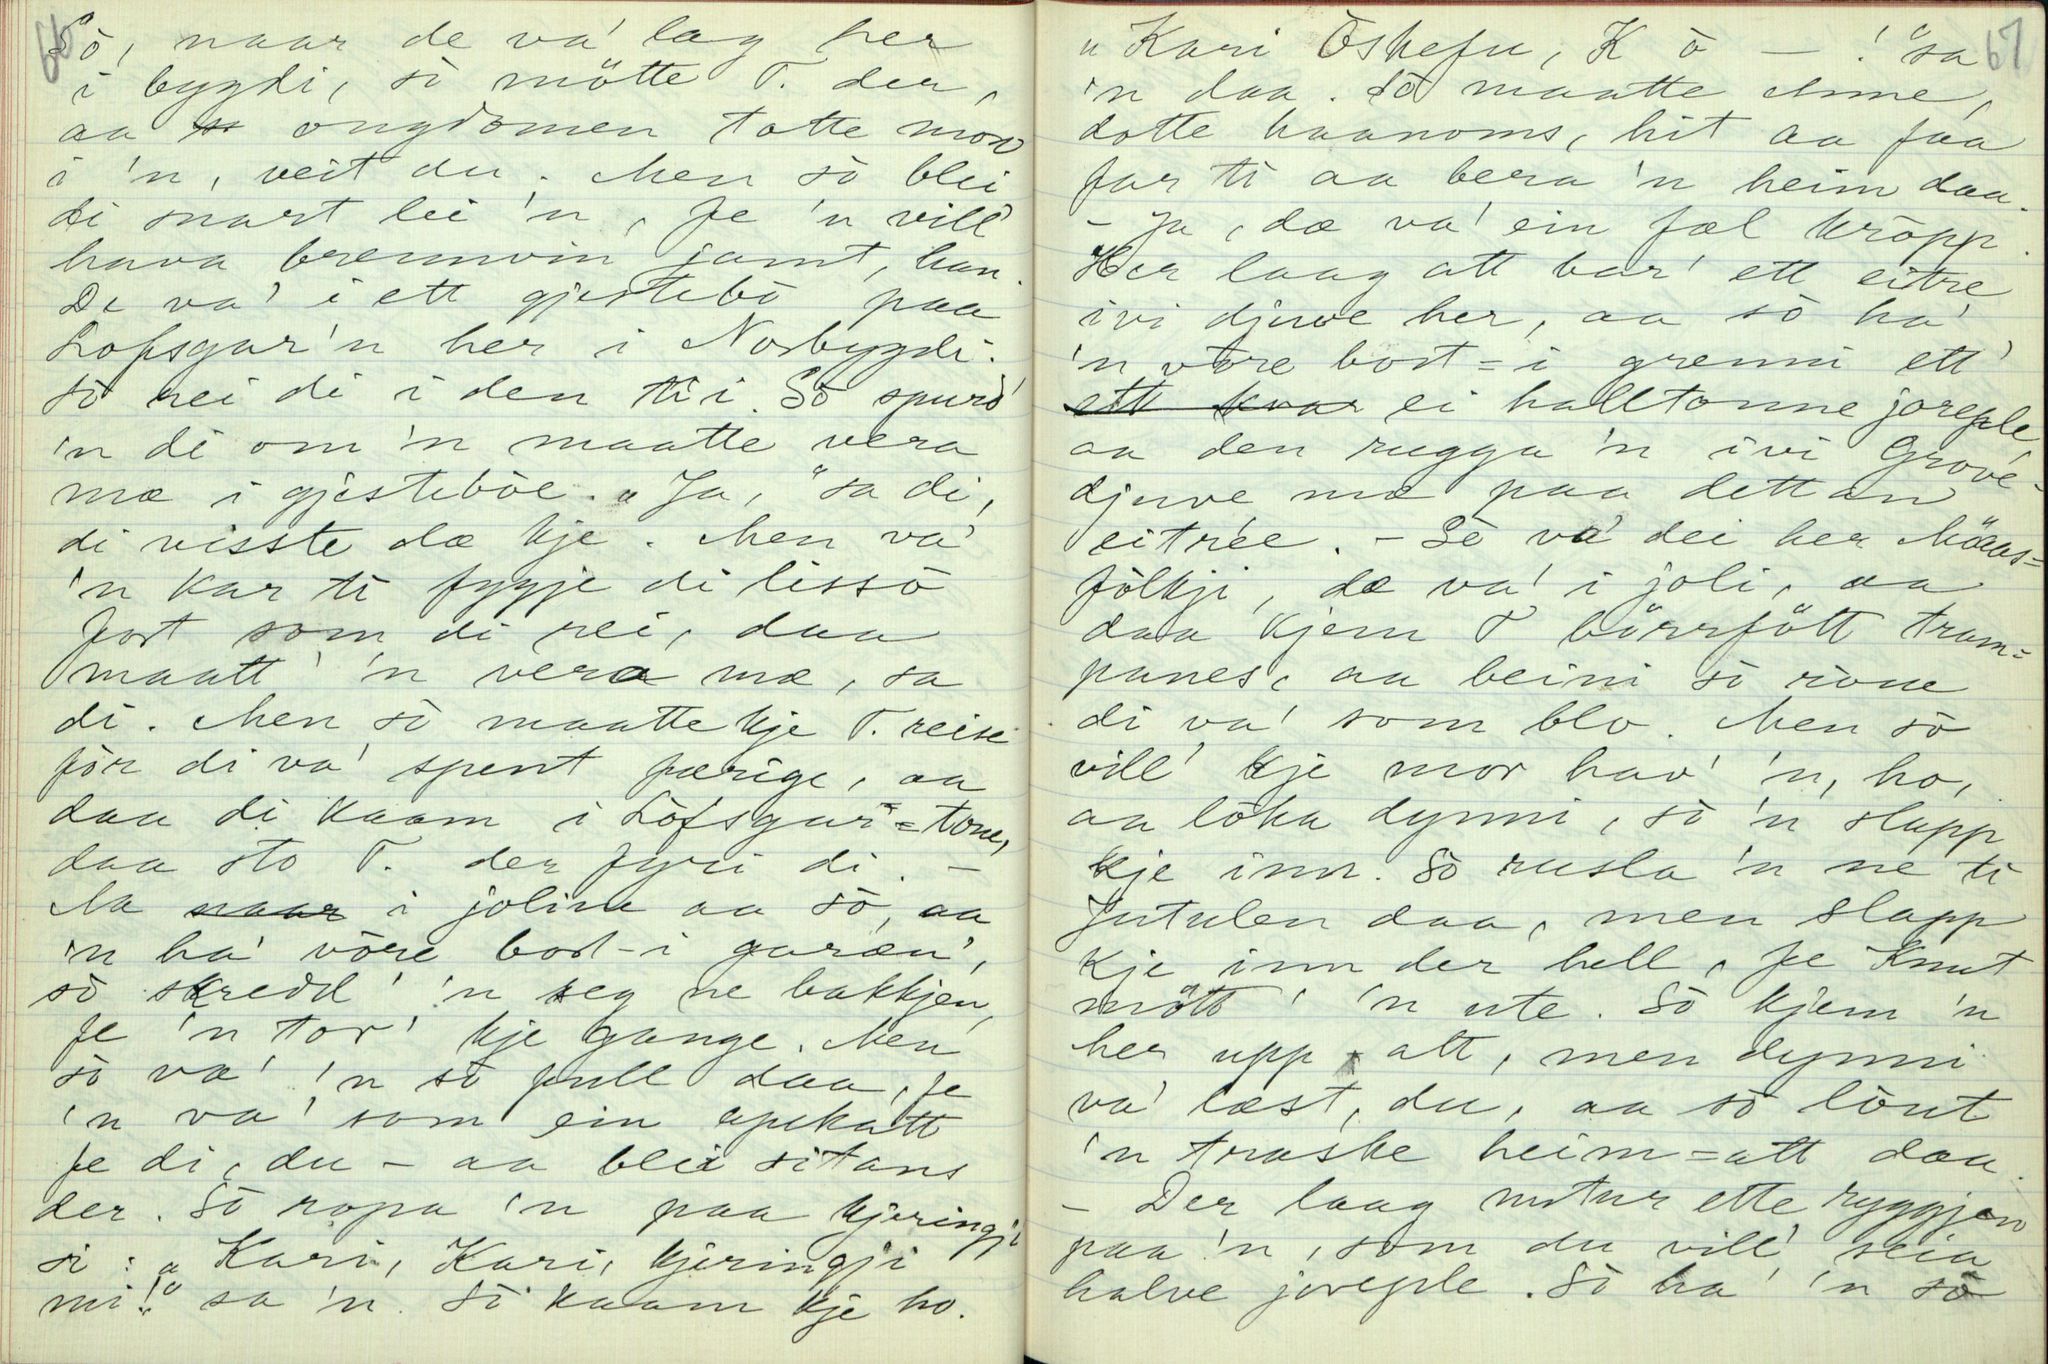 66
Sò, naar de va' lag her
i bygdi, sò mötte T. der,
aa ongdomen totte mor
i 'n, veit du. Men sò blei
di snart lei 'n, fe 'n vill'
hava brennvin jamt, han.
De va' i ett gjestebò paa
Lofsgar'n her i Norbygdi.
Sò rei di i den tii. Sò spurd'
'n di om 'n maatte vera
mæ i gjestebòe. „Ja,“ sa di,
di visste dæ kje. Men va'
'n kar ti fygje di lissò
fort som di rei, daa
maatt' 'n vera mæ, sa
di. Men sò maatte kje T. reise
fòr di va' spent færige, aa
daa di kaam i Lòfsgar-tone,
daa sto T. der fyri di. -
Aa naar i jolinn aa sò, aa
'n ha' vòre bort-i garæn',
sò skredd' 'n seg ne bakkjen,
fe 'n tor' kje gange. Men
sò va' 'n sò full daa, fe
'n va' som ein apekatt
fe di, du - aa blei sitans
der. Sò ropa 'n paa kjeringji
si: „Kari, Kari, kjeringji
mi!“ sa 'n. Sò kaam kje ho.
67
„Kari Òskefu, K ò - !“ sa
'n daa. Sò maatte Anne,
dotte haanoms, hit aa faa
far ti aa bera 'n heim daa.
- Ja, dæ va' ein fæl kròpp.
Her laag att bar' ett eitre
ivi djuve her, aa sò ha'
'n vòre bort=i grenni ett'
ett kvar ei halltonne joreple
aa den rugga 'n ivi Grove-
djuve mæ paa dettan
eitrée. - Sò va' dei her Mòaas=
fòlkji, dæ va' i joli, aa
daa kjem T börrfött tram=
panes, aa beini sò ròue
di va' som blo. Men sò
vill' kje mor hav' 'n, ho,
aa lòka dynni, sò 'n slapp
kje inn. Sò rusla 'n ne ti
Jutulen daa, men slapp
kje inn der hell, fe Knut
mött' 'n ute. Sò kjem 'n
her upp att, men dynni
va' læst, du, aa sò lòut
'n traske heim=att daa.
- Der laag mutur ette ryggjen
paa 'n, som du vill' seia
halve joreple. Sò ha' 'n sò